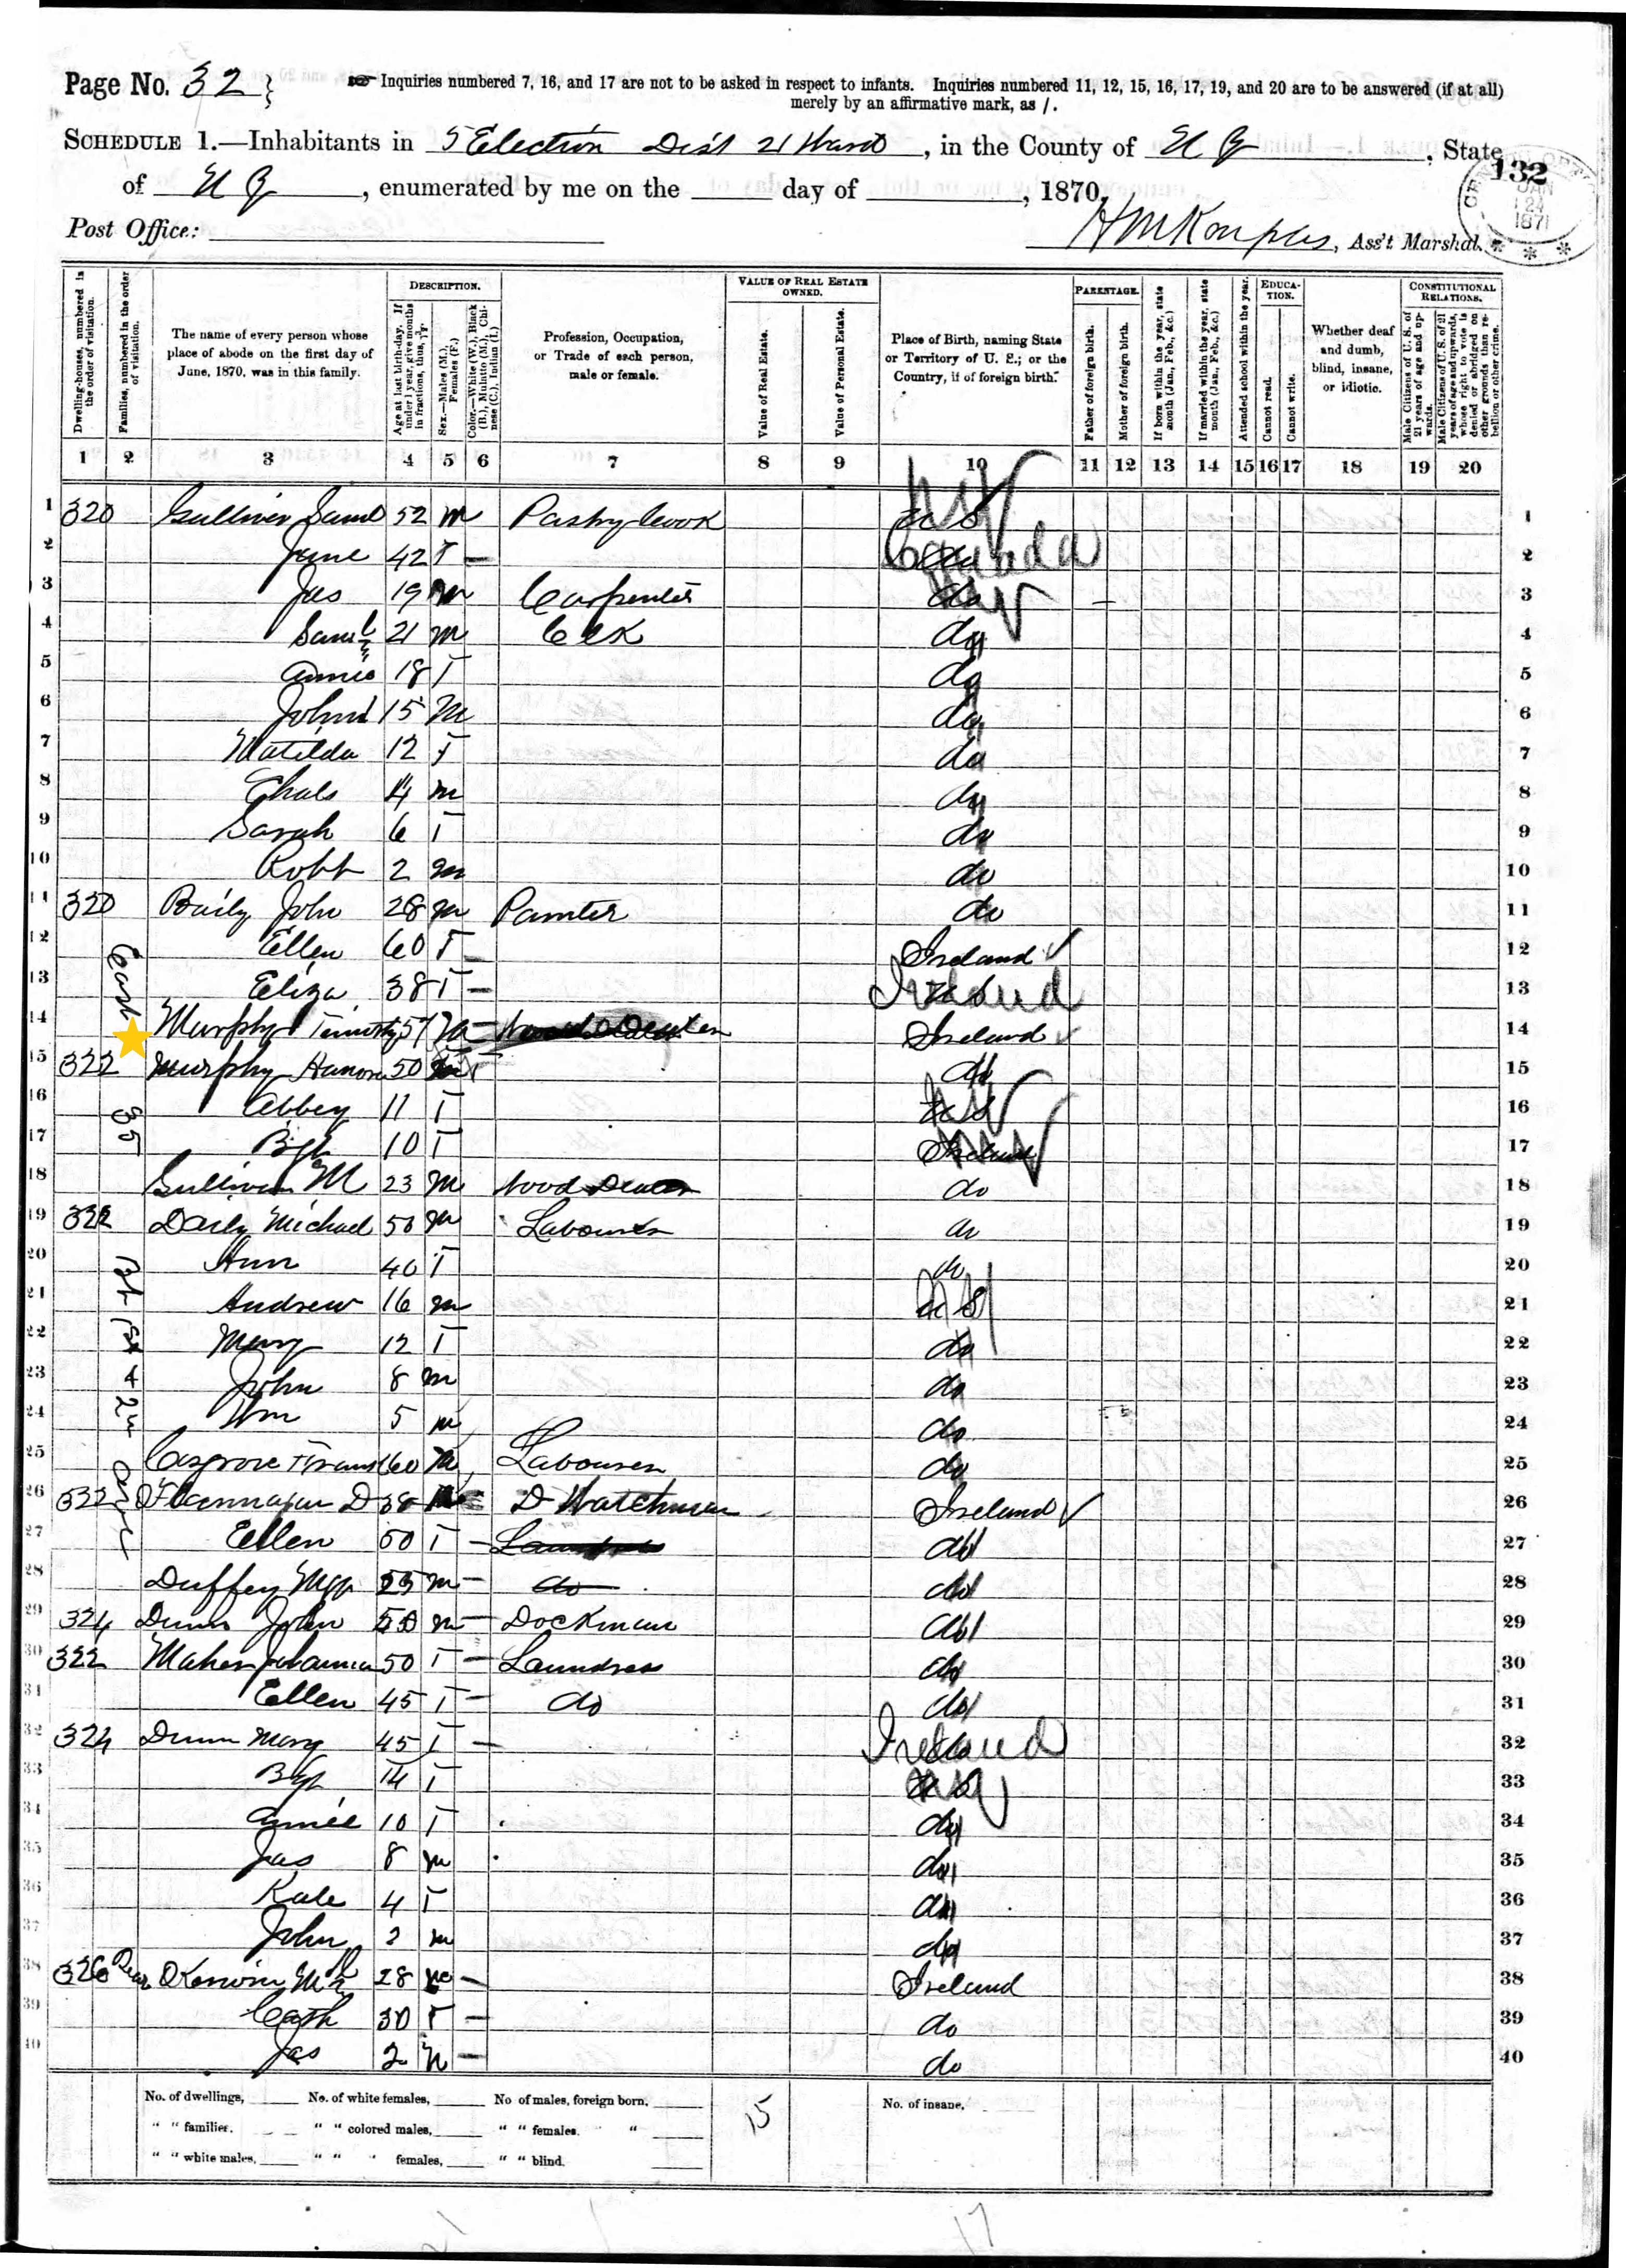 Page No. 32
Inquiries numbered 7, 16, and 17 are not to be asked in respect to infants. Inquiries numbered 11, 12, 15, 16, 17, 19, and 20 are to be answered (if at all)
merely by an affirmative mark, as /.
SCHEDULE 1.—Inhabitants in 5 Election Dist 21 Ward, in the County of N Y, State
of N Y, enumerated by me on the day of , 1870.
132
JAN 24 1871
Post Office:
Ass't Marshal.
Dwelling-houses, numbered in the order of visitation.
Families, numbered in the order of visitation.
The name of every person whose place of abode on the first day of June, 1870, was in this family.
DESCRIPTION.
Age at last birth-day. If under 1 year, give months in fractions, thus, 3/12.
Sex.—Males (M.), Females (F.)
Color.—White (W.), Black (B.), Mulatto (M.), Chinese (C.), Indian (I.)
Profession, Occupation, or Trade of each person, male or female.
VALUE OF REAL ESTATE OWNED.
Value of Real Estate.
Value of Personal Estate.
Place of Birth, naming State or Territory of U. S.; or the Country, if of foreign birth.
PARENTAGE.
Father of foreign birth.
Mother of foreign birth.
If born within the year, state month (Jan., Feb., &c.)
If married within the year, state month (Jan., Feb., &c.)
Attended school within the year.
EDUCATION.
Cannot read.
Cannot write.
Whether deaf and dumb, blind, insane, or idiotic.
CONSTITUTIONAL RELATIONS.
Male Citizens of U. S. of 21 years of age and upwards.
Male Citizens of U. S. of 21 years of age and upwards, whose right to vote is denied or abridged on other grounds than rebellion or other crime.
1 2 3 4 5 6 7 8 9 10 11 12 13 14 15 16 17 18 19 20
1 320 Gulliver Saml 52 M Pastry Cook U S N Y 1
2 Jane 42 F – Canada 2
3 Jas 19 M Carpenter do N Y 3
4 Saml 21 M Clk do 4
5 Annie 18 F do 5
6 John 15 M do 6
7 Matilda 12 F do 7
8 Chals M do 8
9 Sarah 6 F do 9
10 Robt 2 M do 10
11 320 Baily John 28 M Painter do 11
12 Ellen 60 F – Ireland 12
13 Eliza 38 F – Ireland 13
14 Murphy Timothy 57 M – Wood Dealer Ireland 14
15 322 Murphy Hanora 50 F do 15
16 Abbey 11 F U S N Y 16
17 10 F Ireland N Y 17
18 Sullivan M 23 M Wood Dealer do 18
19 322 Daily Michael 50 M Labourer do 19
20 Ann 40 F do 20
21 Andrew 16 M U S N Y 21
22 Mary 12 F do 22
23 John 8 M do 23
24 Wm 5 M do 24
25 Cosgrove 60 M Labourer do 25
26 322 D 38 M D Watchman Ireland 26
27 Ellen 50 F – Laundress do 27
28 Duffey M – do do 28
29 324 Dunn John 50 M – Dockman do 29
30 322 Maher Johanna 50 F – Laundress do 30
31 Ellen 45 F – do do 31
32 324 Dunn Mary 45 F – Ireland 32
33 14 F U S N Y 33
34 Annie 10 F do 34
35 Jas 8 M do 35
36 Kate 4 F do 36
37 John 2 M do 37
38 326 Rear 28 M – Ireland 38
39 Cath 30 F – do 39
40 Jas 2 M – do 40
East 35 St
No. of dwellings, No. of white females, No of males, foreign born, 15 No. of insane,
" " families. " " colored males, " " females. "
" " white males, " " " females, " " blind.
17